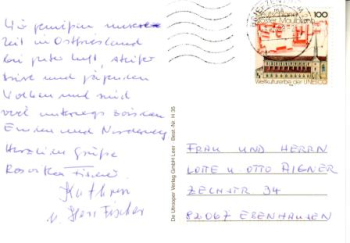 Wir genießen unsere
Zeit in Ostfriesland
bei guter Luft, steifer
Brise und jagenden
Wolken und sind
viel unterwegs zwischen
Emden und Norderney
Herzliche Grüße
Kathrin
Fischer
De Utrooper Verlag GmbH Leer Best.-Nr. H 35
100
Weltkulturerbe der UNESCO
FRAU UND HERRN
LOTTE u OTTO AIGNER
ZECHSTR 34
82067 EBENHAUSEN